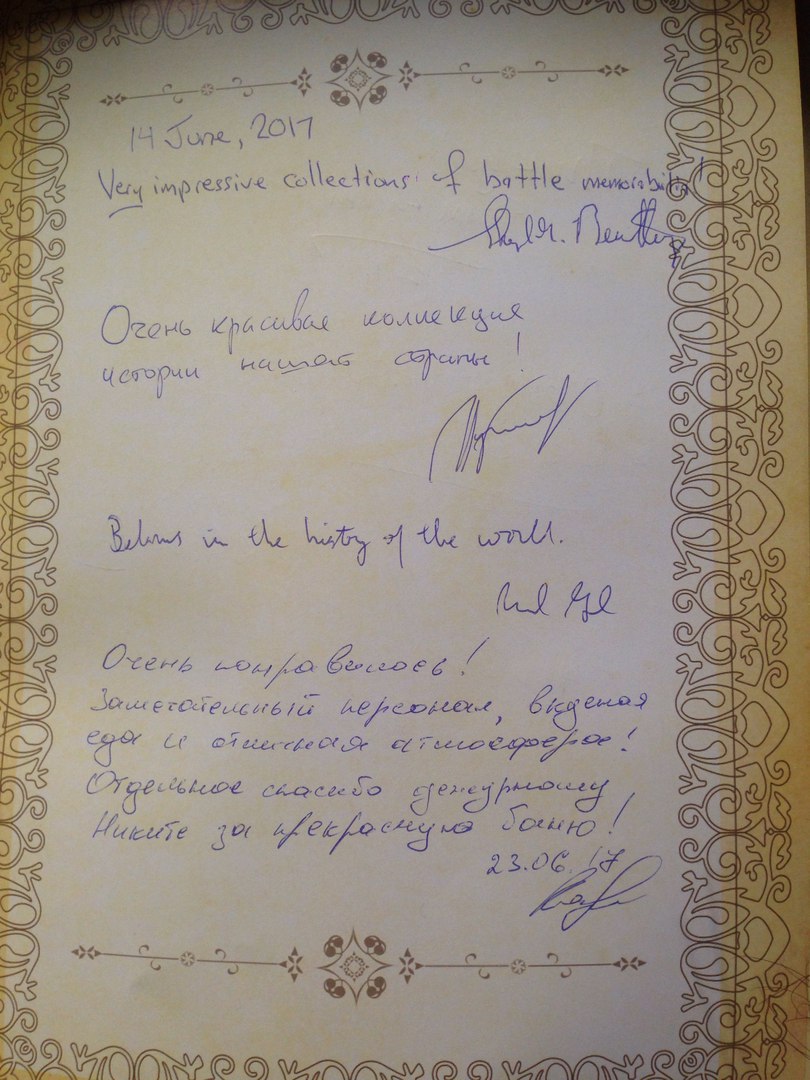 14 June, 2017
Very impressive collections of battle memorabilia!
Очень красивая коллекция
истории нашей страны!
in the history of the world.
Очень понравилось!
Замечательный персонал, вкусная
еда и отличная атмосфера!
Отдельное спасибо дежурному
Никите за прекрасную баню!
23.06.17